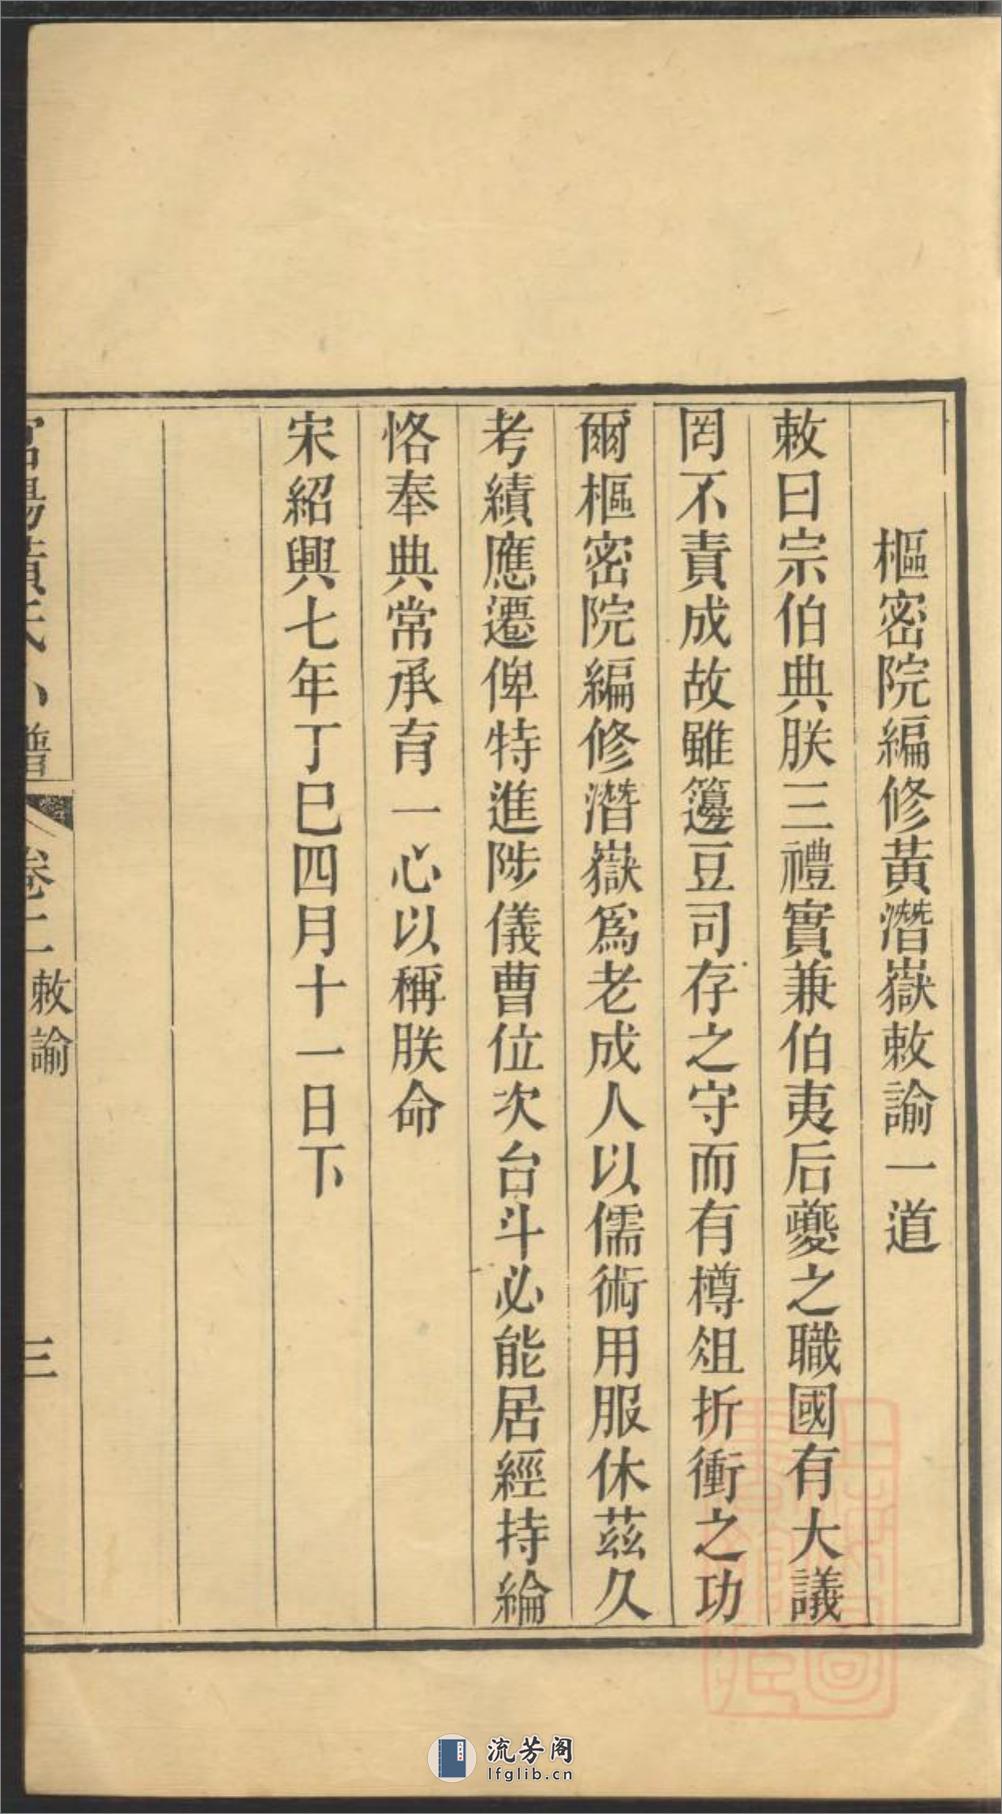 樞密院編修黃潛嶽敕諭一道
敕曰宗伯典朕三禮實兼伯夷后夔之職國有大議
罔不責成故雖籩豆司存之守而有樽俎折衝之功
爾樞密院編修潛嶽爲老成人以儒術用服休茲久
考績應遷俾特進陟儀曹位次台斗必能居經持綸
恪奉典常承育一心以稱朕命
宋紹興七年丁巳四月十一日下
黃氏小譜
卷二
敕諭
三
流芳阁
lfglib.cn